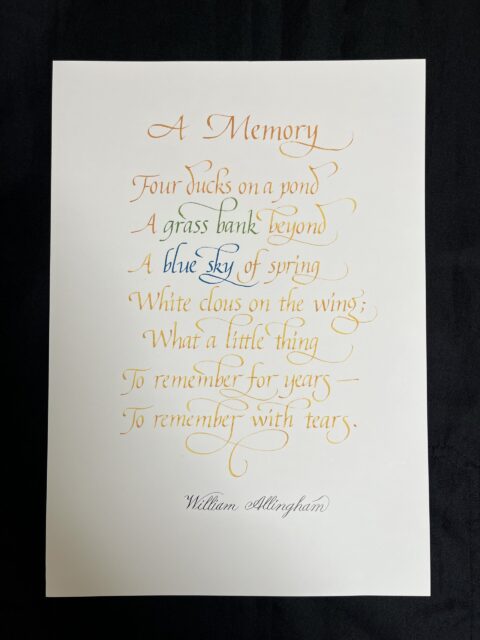 A Memory
Four ducks on a pond
A grass bank beyond
A blue sky of spring
White clous on the wing;
What a little thing
To remember for years —
To remember with tears.
William Allingham